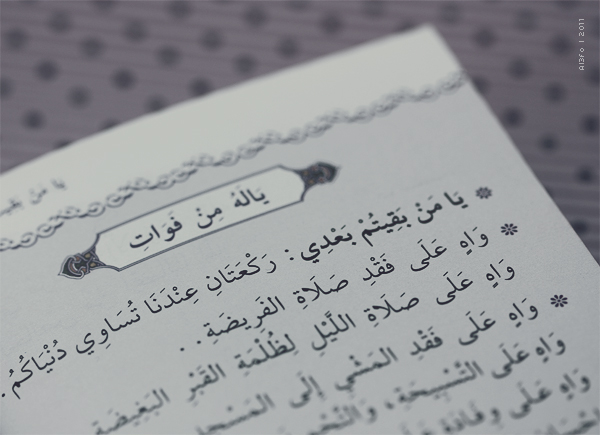 Al3Fo | 2011
يَا مَنْ
يَالَهُ مِنْ فَوَاتٍ
❊ يَا مَنْ بَقِيتُمْ بَعْدِي : رَكْعَتَانِ عِنْدَنَا تُسَاوِي دُنْيَاكُمْ.
❊ وَاهٍ عَلَى فَقْدِ صَلَاةِ الفَرِيضَةِ..
وَاهٍ عَلَى صَلَاةِ اللَّيْلِ لِظُلْمَةِ القَبْرِ البَغِيضَةِ
❊ وَاهٍ عَلَى فَقْدِ المَشْيِ إِلَى المَسْجِدِ
وَاهٍ عَلَى التَّسْبِيحَةِ، وَالتَّحْمِيدَةِ
وَاهٍ عَلَى